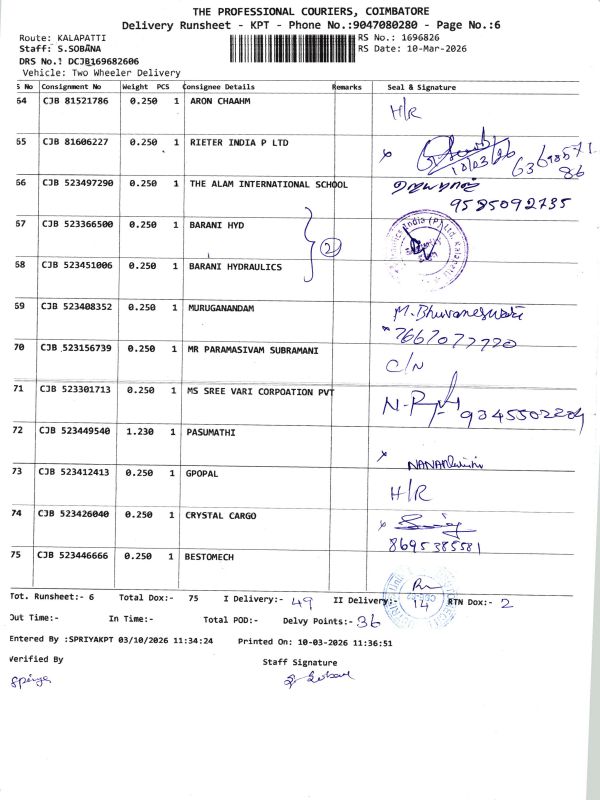 THE PROFESSIONAL COURIERS, COIMBATORE
Delivery Runsheet - KPT - Phone No.:9047080280 - Page No.:6
Route: KALAPATTI
RS No.: 1696826
Staff: S.SOBANA
RS Date: 10-Mar-2026
DRS No.! DCJB169682606
Vehicle: Two Wheeler Delivery
S No Consignment No Weight PCS Consignee Details Remarks Seal & Signature
64 CJB 81521786 0.250 1 ARON CHAAHM H/R
65 CJB 81606227 0.250 1 RIETER INDIA P LTD
10/03/26
66 CJB 523497290 0.250 1 THE ALAM INTERNATIONAL SCHOOL
9585092735
67 CJB 523366500 0.250 1 BARANI HYD
2
68 CJB 523451006 0.250 1 BARANI HYDRAULICS
69 CJB 523408352 0.250 1 MURUGANANDAM M. Bhuvaneswari
7667077720
70 CJB 523156739 0.250 1 MR PARAMASIVAM SUBRAMANI C/N
71 CJB 523301713 0.250 1 MS SREE VARI CORPOATION PVT
72 CJB 523449540 1.230 1 PASUMATHI
73 CJB 523412413 0.250 1 GPOPAL H/R
74 CJB 523426040 0.250 1 CRYSTAL CARGO
8695385581
75 CJB 523446666 0.250 1 BESTOMECH
Tot. Runsheet:- 6 Total Dox:- 75 I Delivery:- 49 II Delivery:- 14 RTN Dox:- 2
Out Time:- In Time:- Total POD:- Delvy Points:- 36
Entered By :SPRIYAKPT 03/10/2026 11:34:24 Printed On: 10-03-2026 11:36:51
Verified By Staff Signature